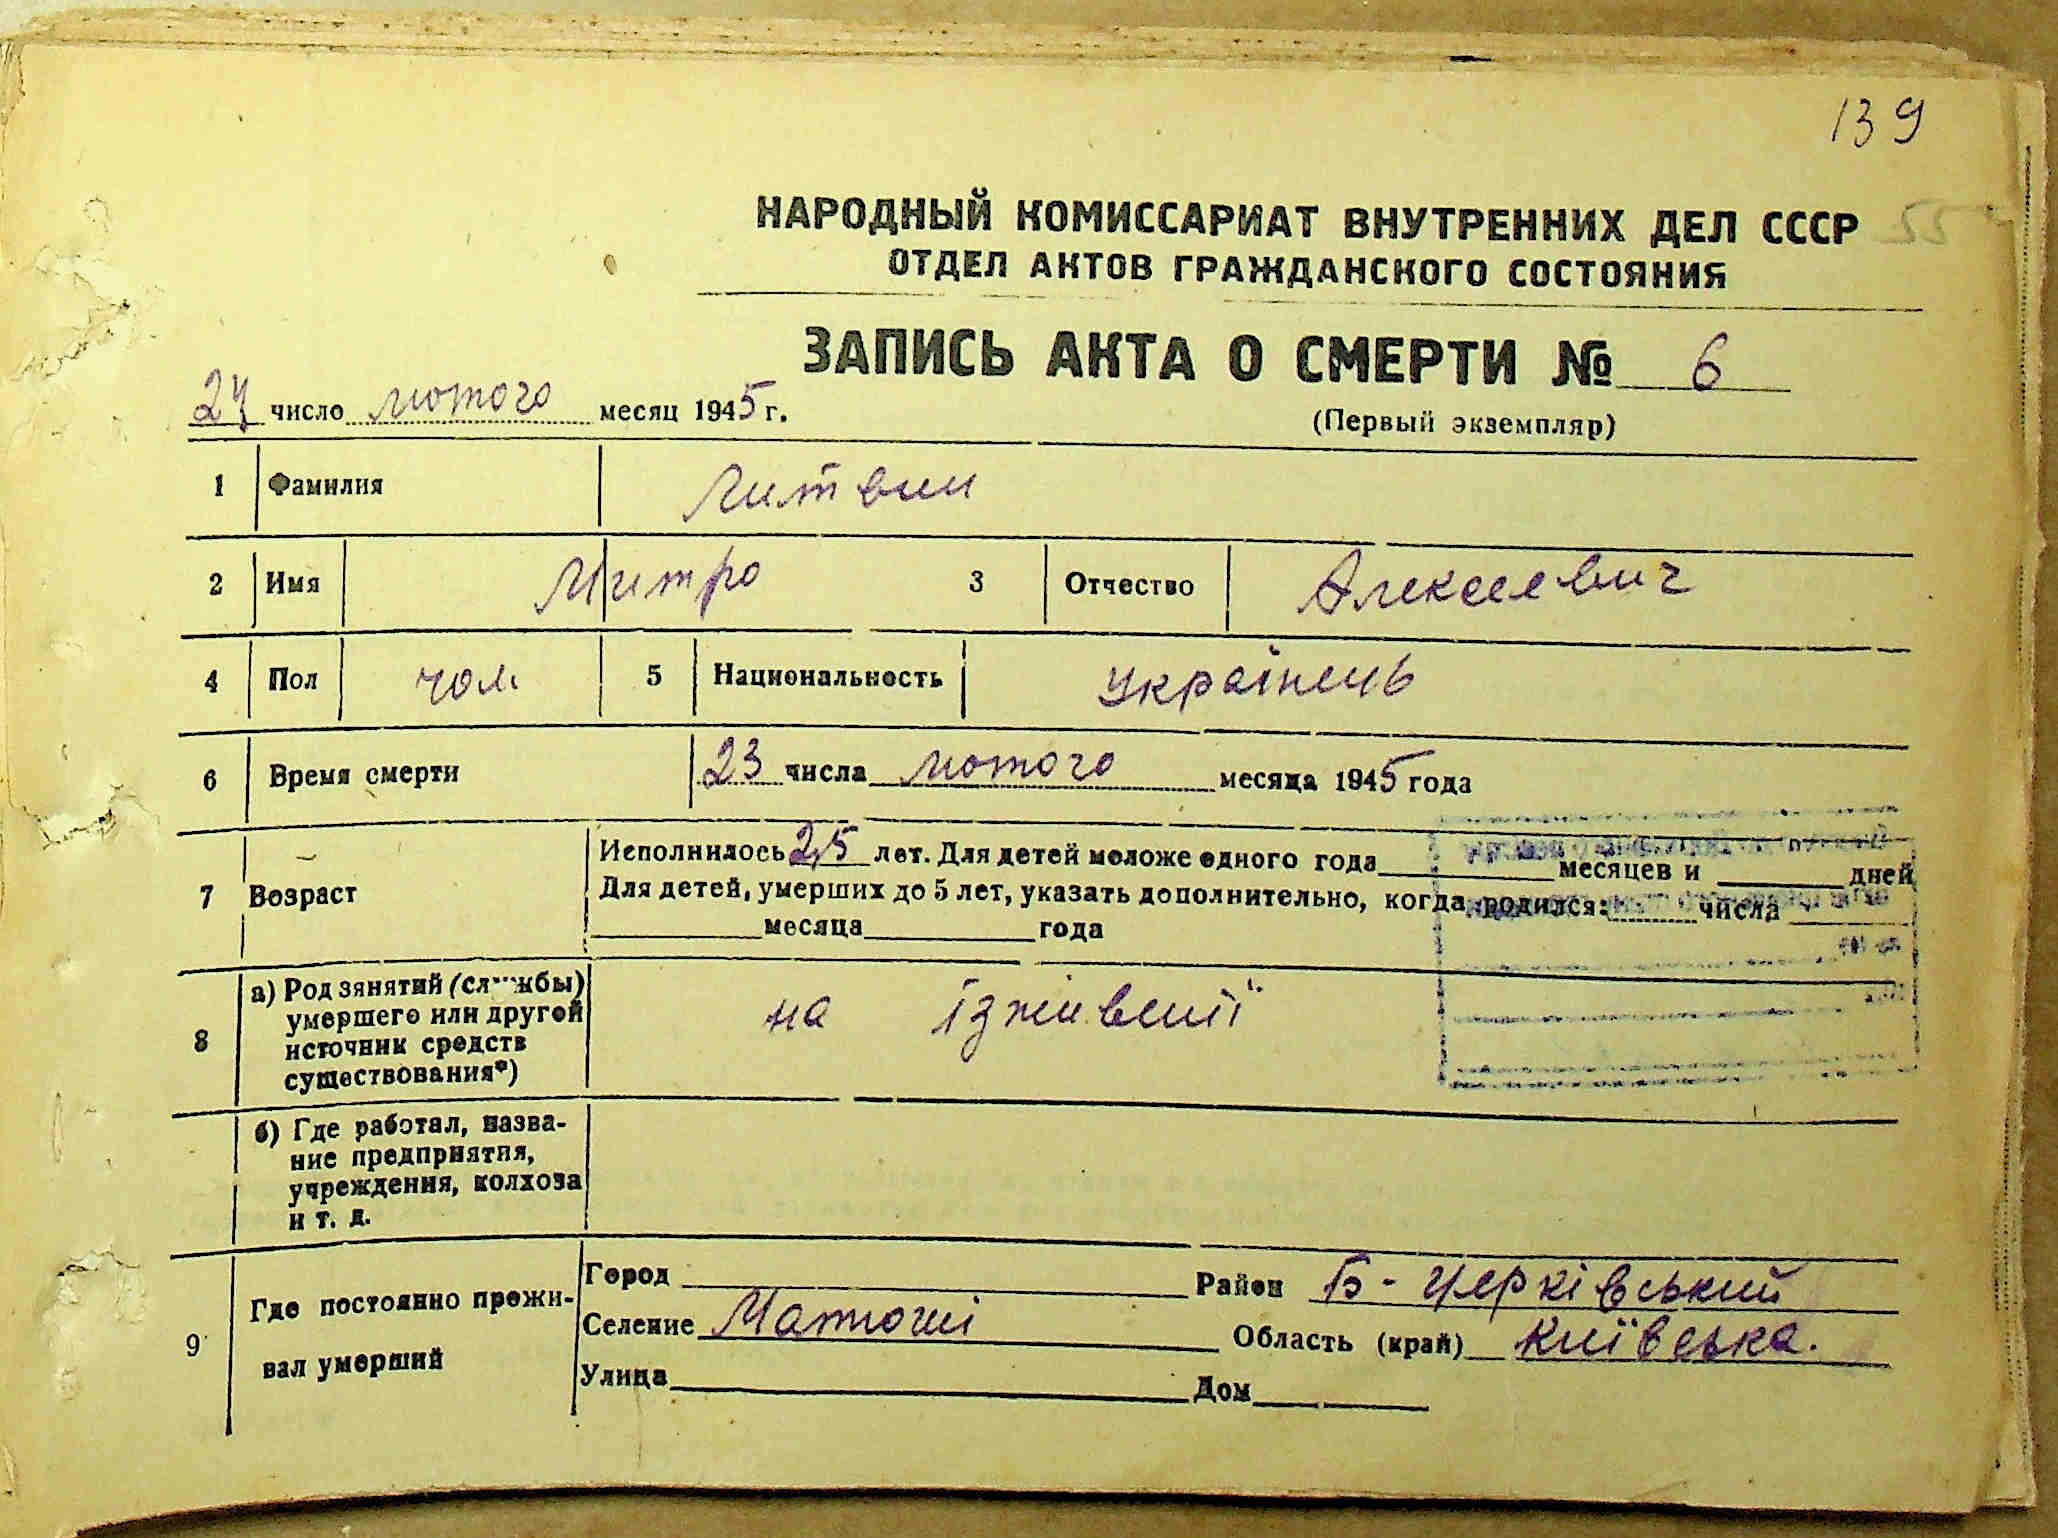 139
НАРОДНЫЙ КОМИССАРИАТ ВНУТРЕННИХ ДЕЛ СССР
ОТДЕЛ АКТОВ ГРАЖДАНСКОГО СОСТОЯНИЯ
ЗАПИСЬ АКТА О СМЕРТИ № 6
24 число лютого месяц 1945 г.
(Первый экземпляр)
1 Фамилия Литвин
2 Имя Митро 3 Отчество Алексеевич
4 Пол чол. 5 Национальность Українець
6 Время смерти 23 числа лютого месяца 1945 года
7 Возраст Исполнилось 25 лет. Для детей моложе одного года месяцев и дней
Для детей, умерших до 5 лет, указать дополнительно, когда родился: числа
месяца года
8 а) Род занятий (службы)
умершего или другой
источник средств
существования*)
на іживенії
б) Где работал, назва-
ние предприятия,
учреждения, колхоза
и т. д.
9 Где постоянно прожи-
вал умерший
Город Район Б-Церківський
Селение Матюші Область (край) Київська.
Улица Дом